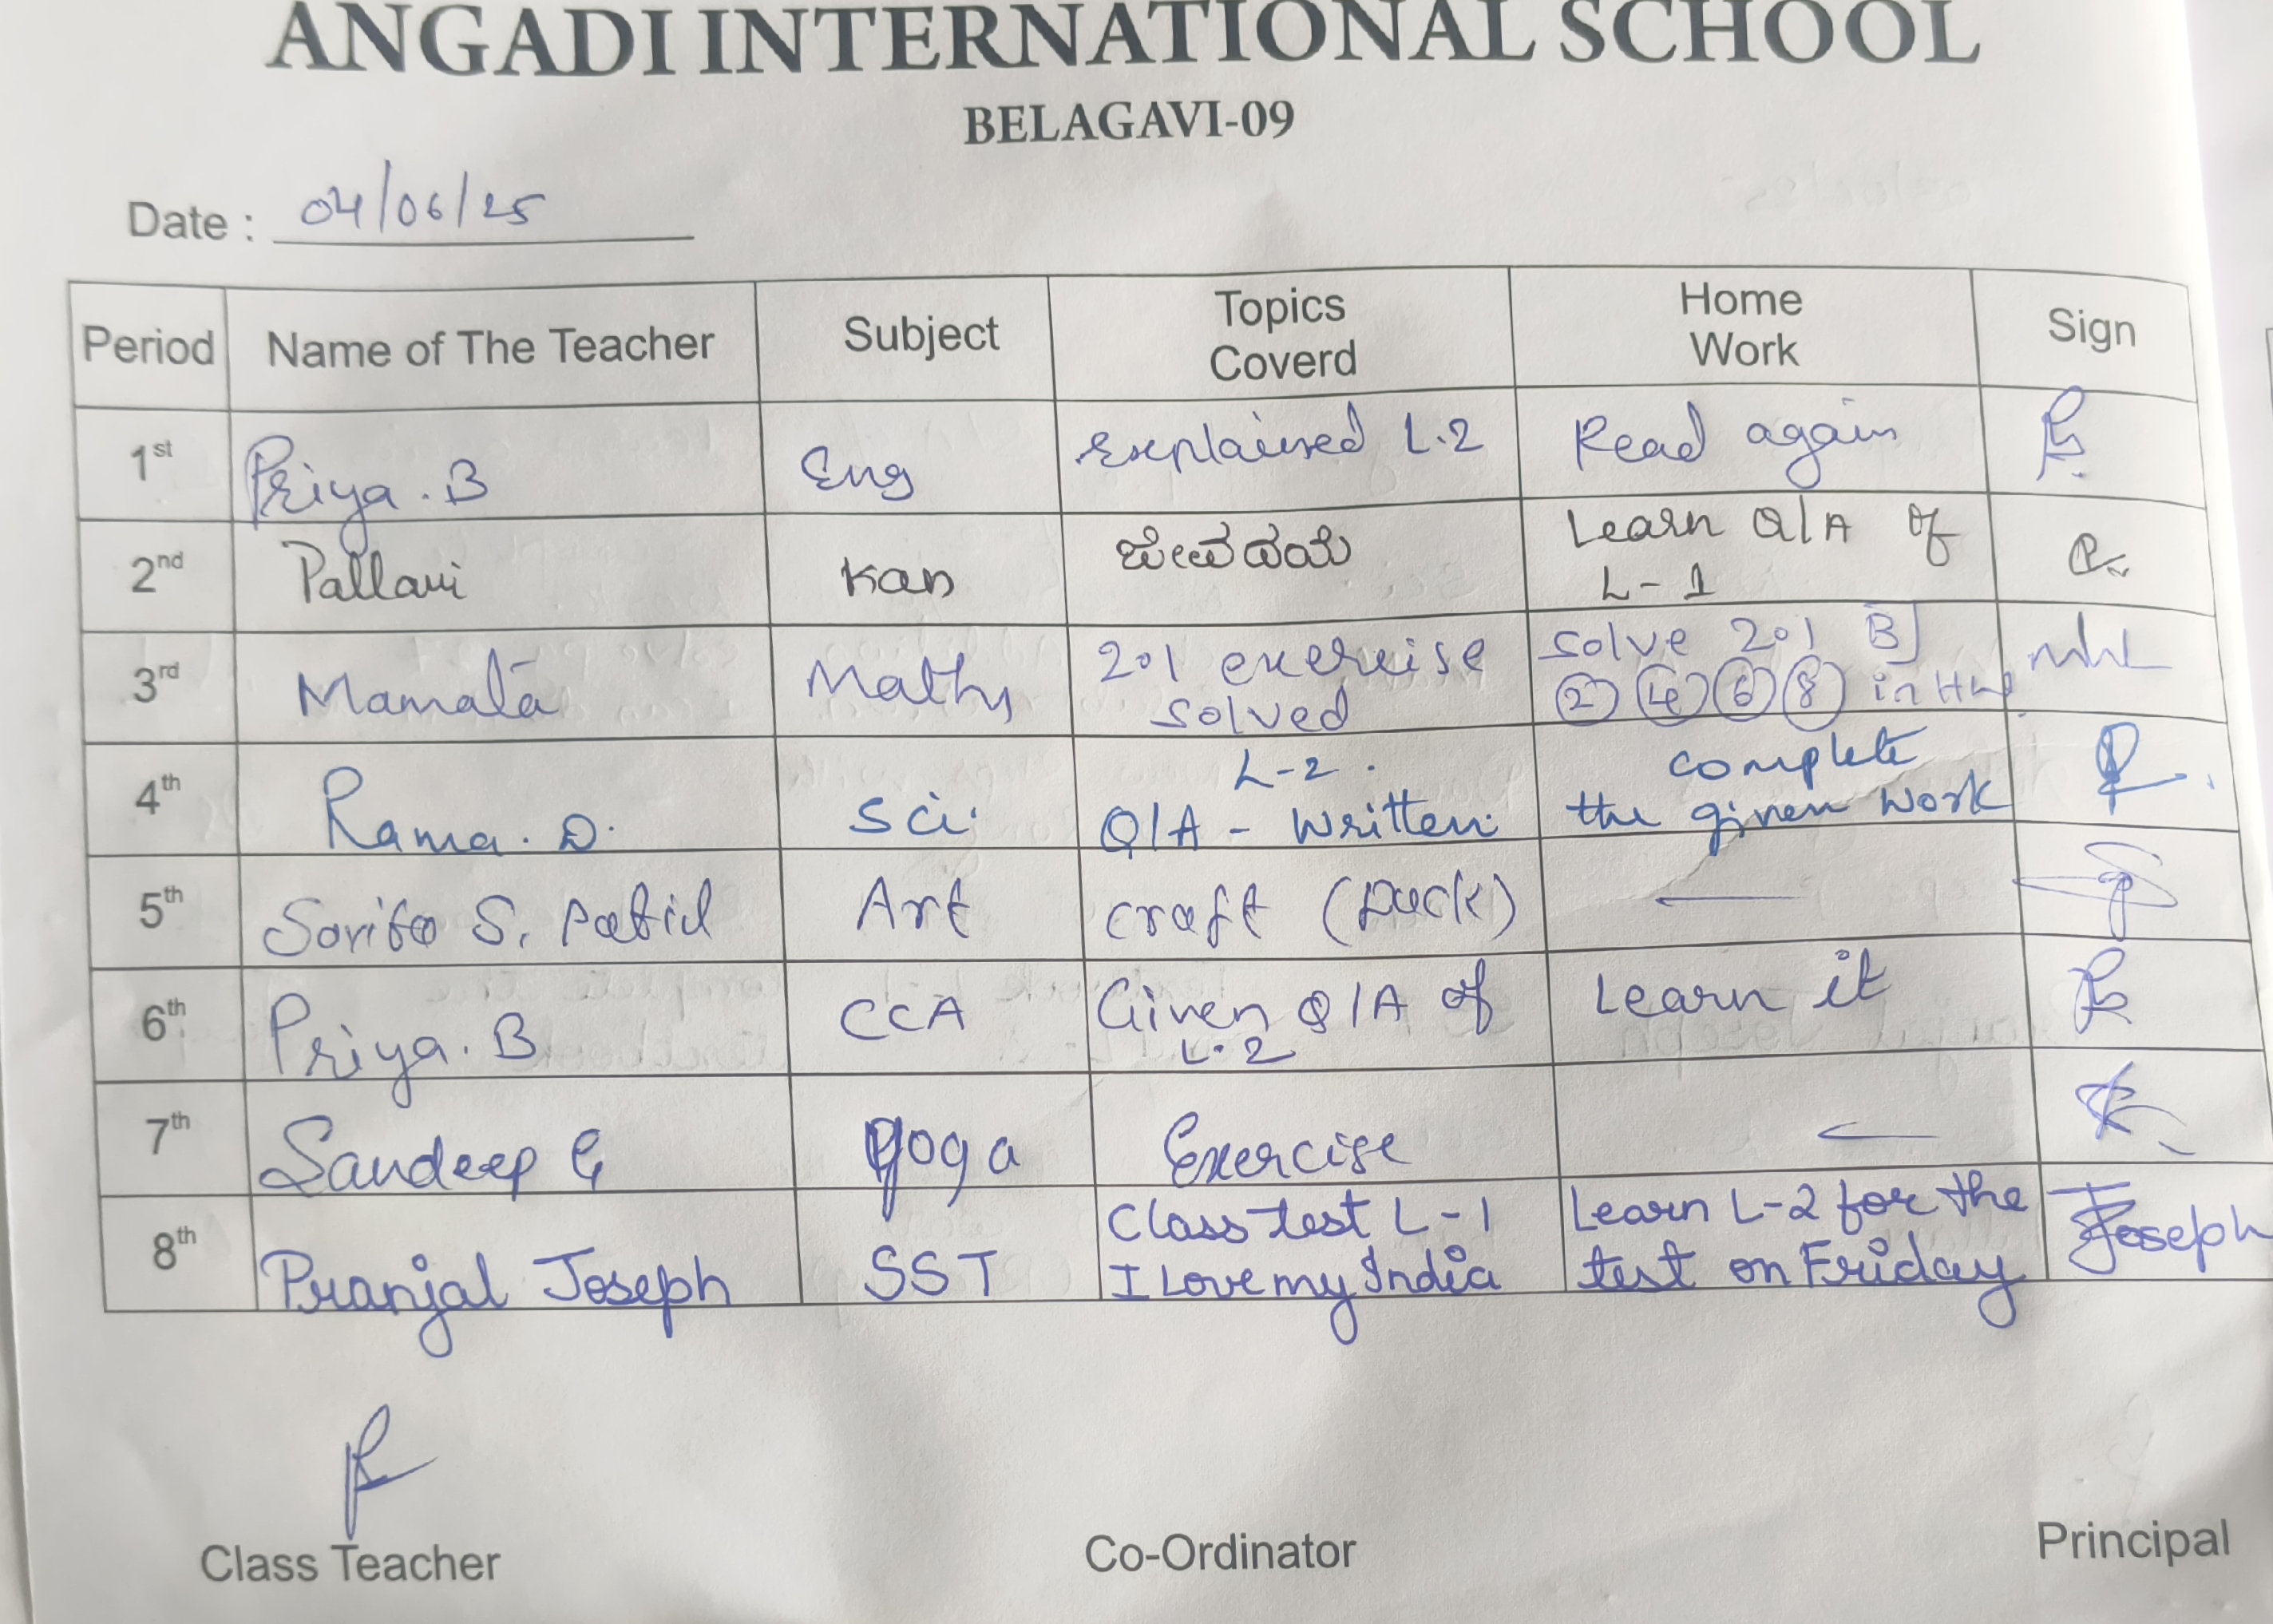 ANGADI INTERNATIONAL SCHOOL
BELAGAVI-09
Date : 04/06/25
Period Name of The Teacher Subject Topics Coverd Home Work Sign
1st Priya. B Eng Explained L.2 Read again
2nd Pallavi Kan ಜೀವದಯೆ Learn Q/A of L-1
3rd Mamata Maths 2.1 exercise solved solve 2.1 B] 2 4 6 8 in HW
4th Rama. D. Sci. L-2. Q/A - Written. complete the given work
5th Sarita S. Patil Art craft (Duck)
6th Priya. B CCA Given Q/A of L.2 Learn it
7th Sandeep G Yoga Exercise
8th Pranjal Joseph SST Class test L-1 I Love my India Learn L-2 for the test on Friday Joseph
Class Teacher Co-Ordinator Principal